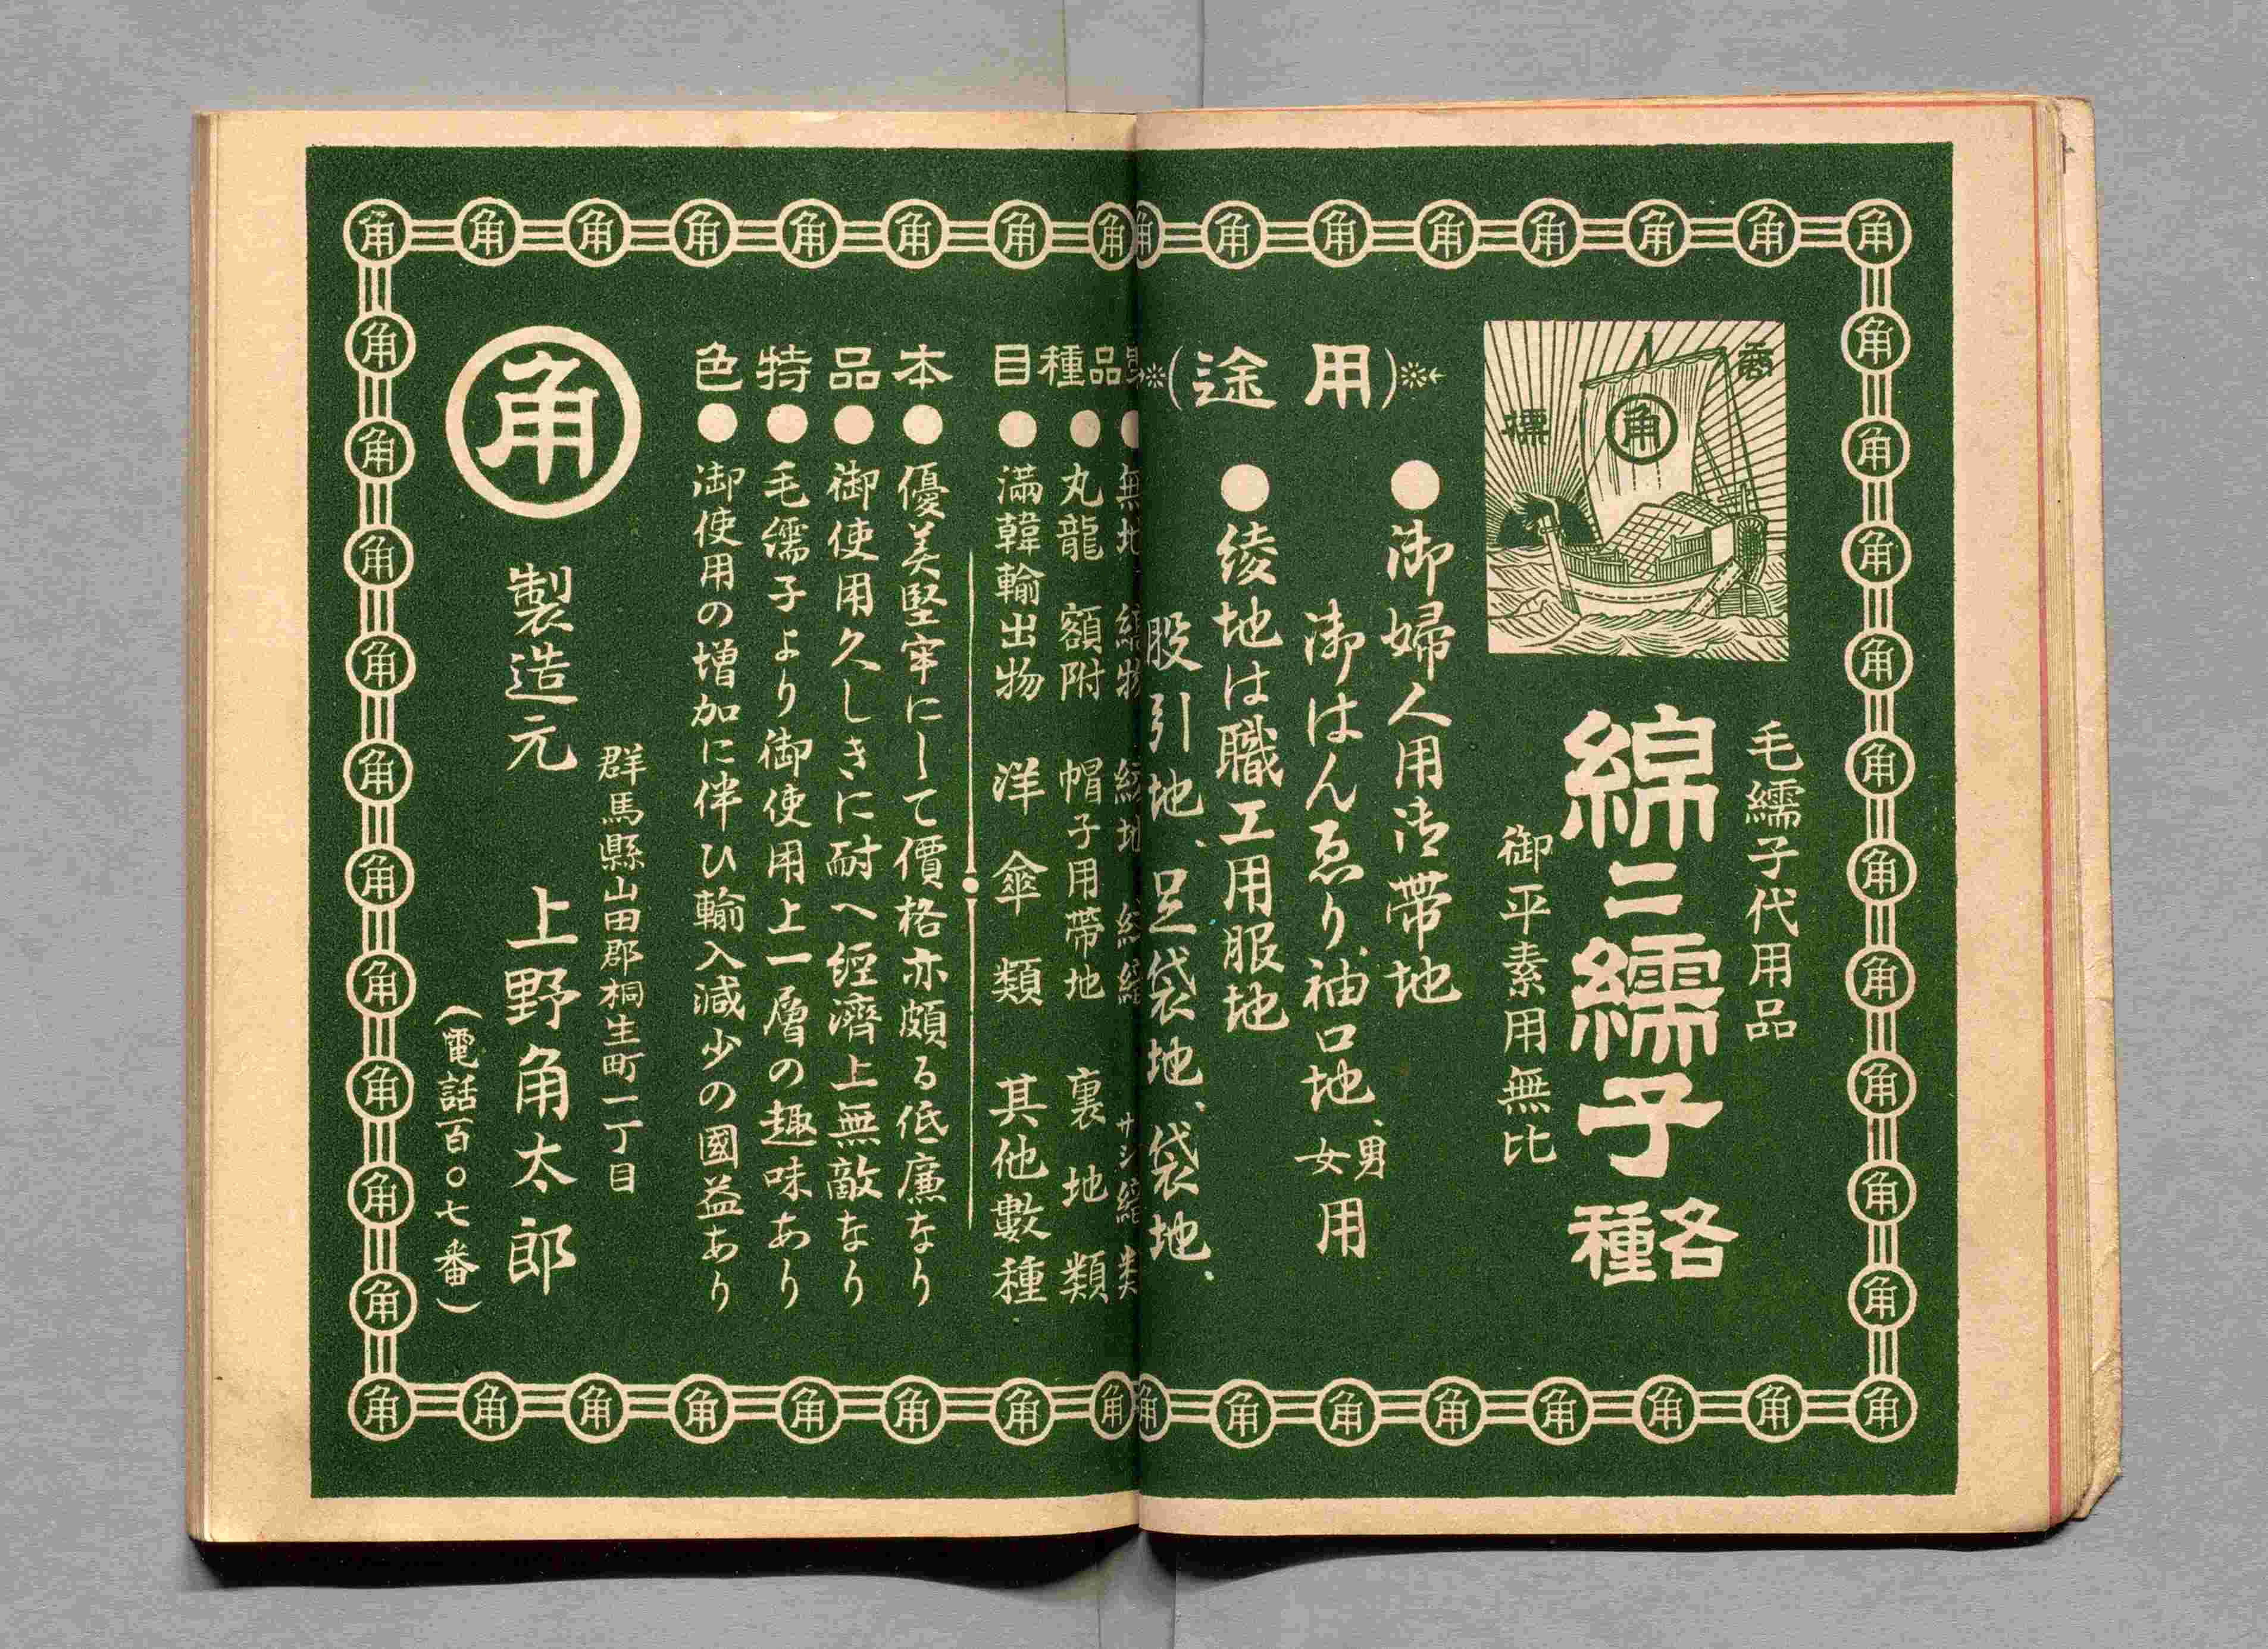 商標
角
毛繻子代用品
綿二繻子各種
御平素用無比
(用途)
●御婦人用御帯地
御はんゑり、袖口地、男女用
●綾地は職工用服地
股引地、足袋地、袋地、
品種目
●丸龍 額附 帽子用帶地 裏地類
●滿韓輸出物 洋傘類 其他數種
本品特色
●優美堅牢にして價格亦頗る低廉なり
●御使用久しきに耐へ經濟上無敵なり
●毛繻子より御使用上一層の趣味あり
●御使用の増加に伴ひ輸入減少の國益あり
角
群馬縣山田郡桐生町一丁目
製造元 上野角太郎
(電話百〇七番)